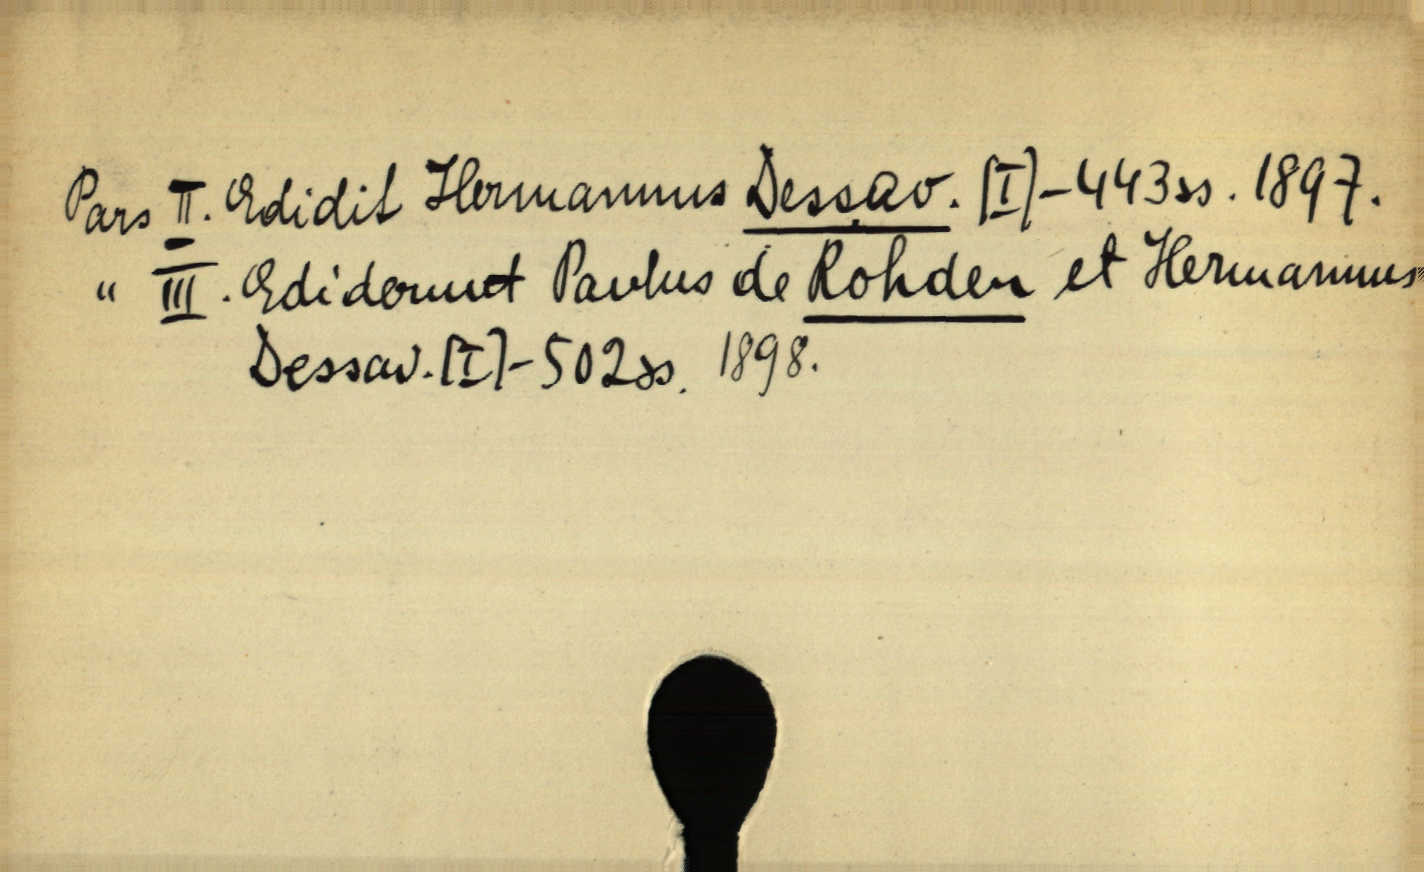 Pars II. Edidit Hermannus Dessav. [I]-443ss. 1897.
" III. Ediderunt Pavlus de Rohden et Hermannus
Dessav. [I]-502ss. 1898.